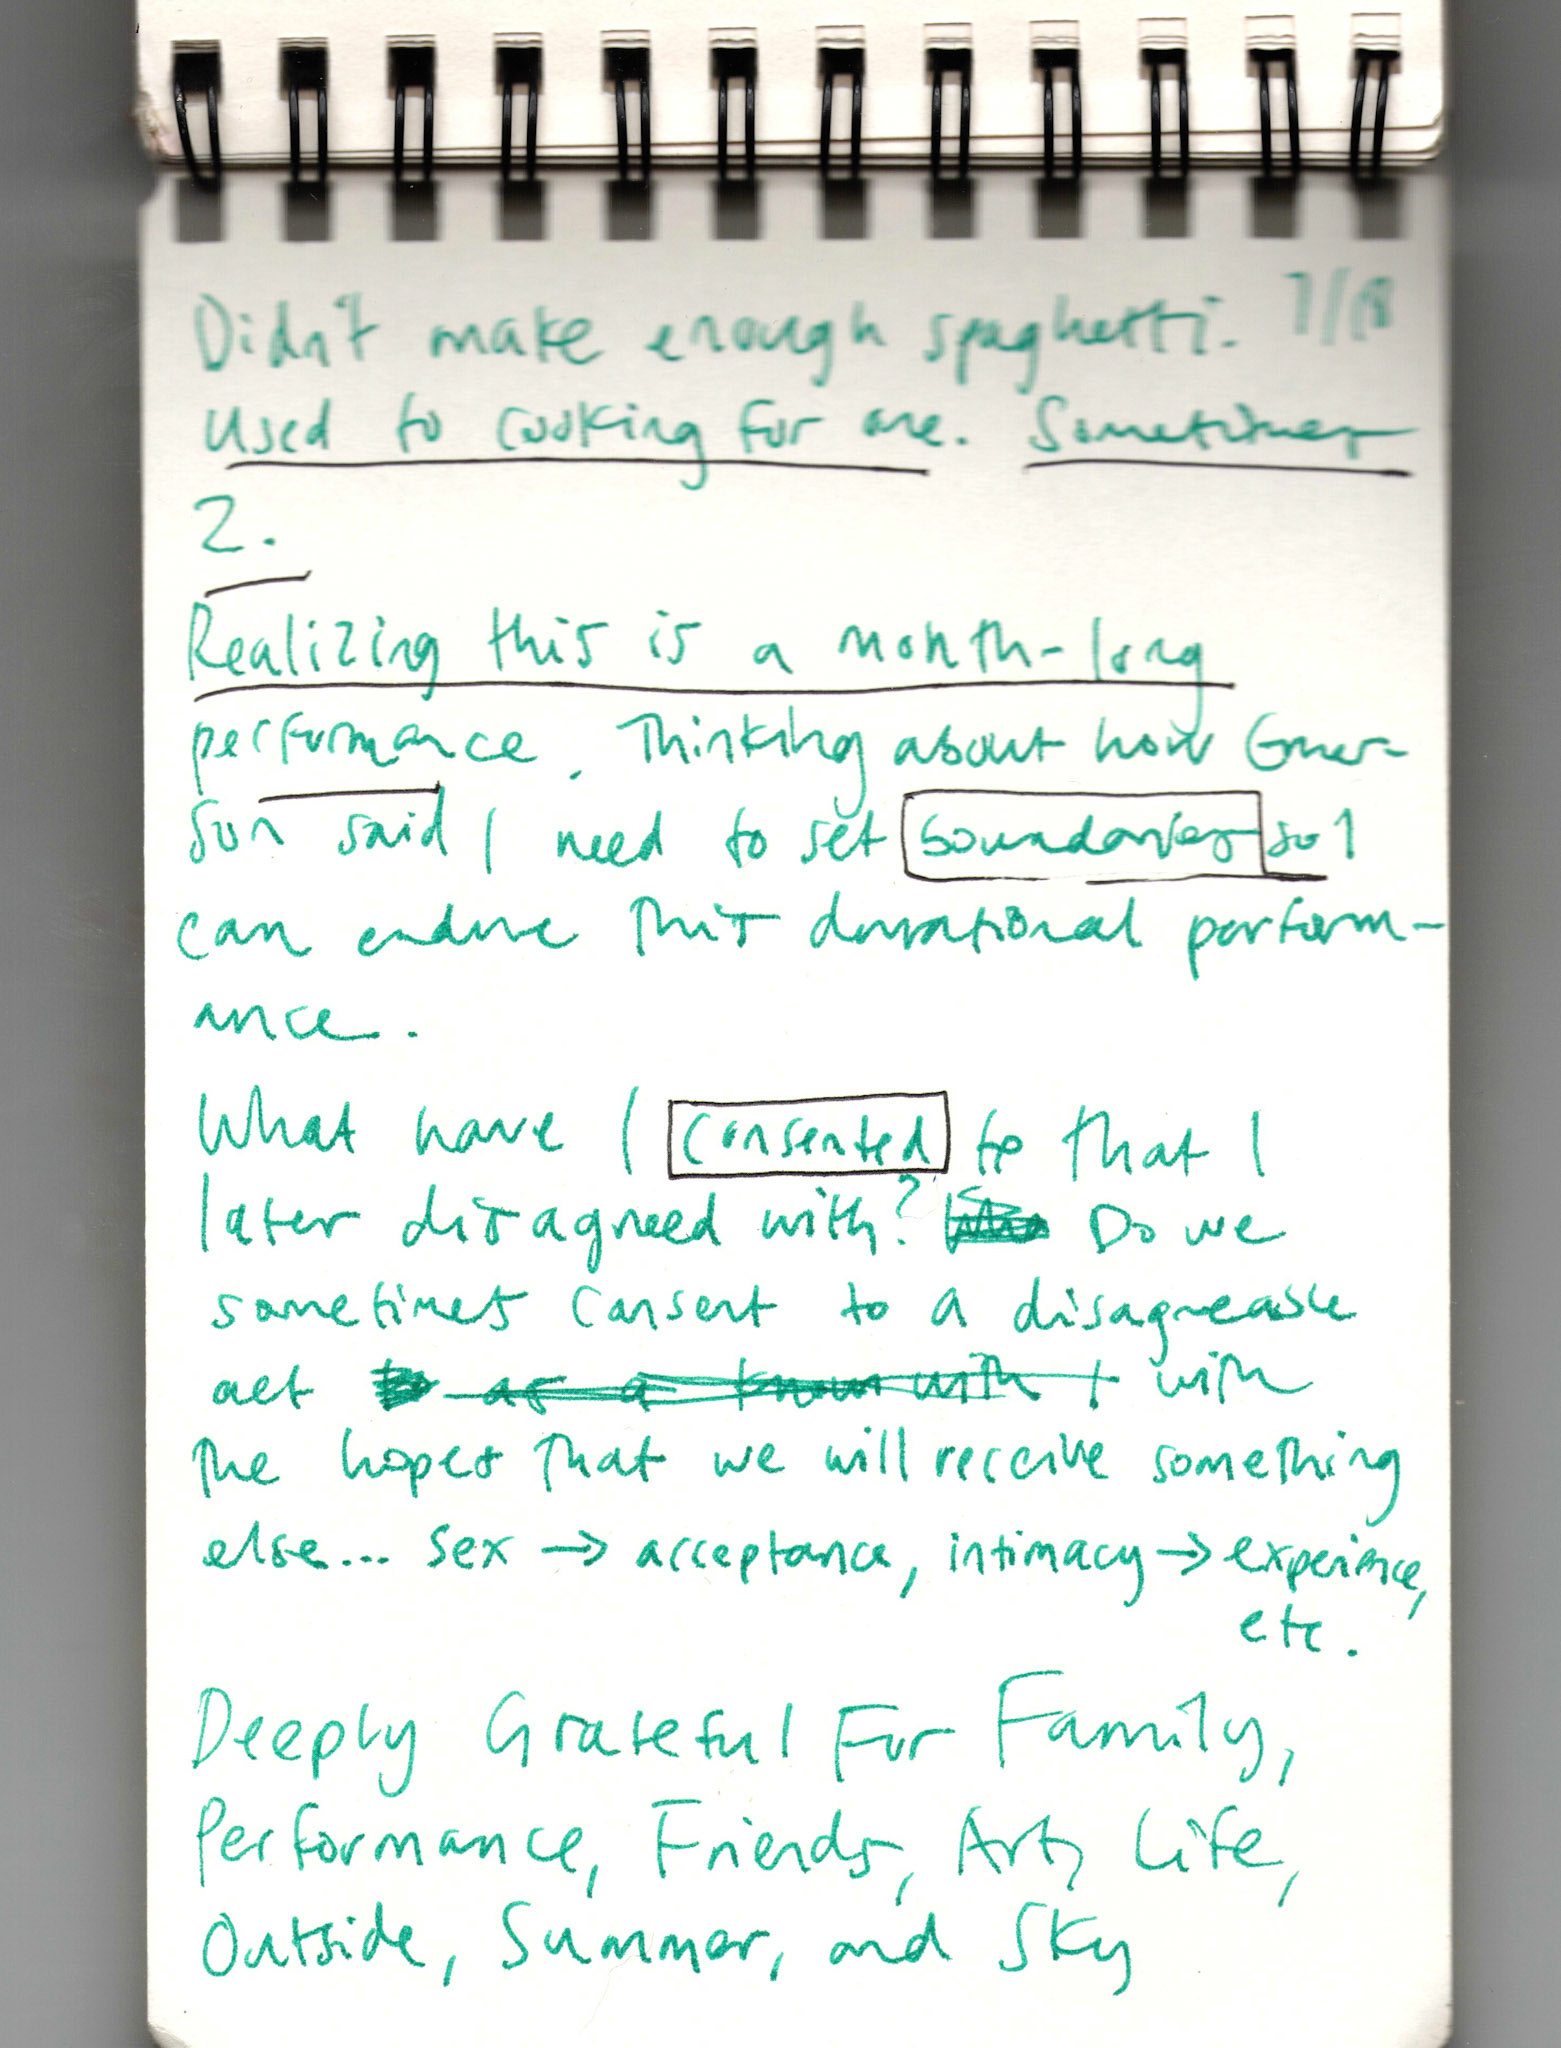 Didn't make enough spaghetti. 7/18
Used to cooking for one. Sometimes
2.
Realizing this is a month-long
performance. Thinking about how Emer-
son said I need to set boundaries so I
can endure this durational perform-
ance.
What have I consented to that I
later disagreed with? Do we
sometimes consent to a disagreeable
act as a know with + with
the hopes that we will receive something
else... sex → acceptance, intimacy → experience,
etc.
Deeply Grateful For Family,
Performance, Friends, Art, Life,
Outside, Summer, and Sky